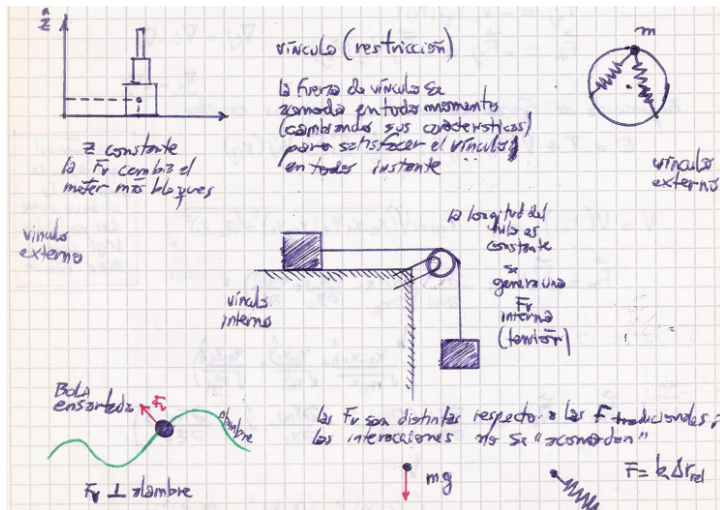 ẑ
z constante
la Fv cambia al
meter más bloques
vínculo
externo
vínculo (restricción)
la fuerza de vínculo se
acomoda en todo momento
(cambiando sus características)
para satisfacer el vínculo
en todo instante
m
vínculo
externo
vínculo
interno
la longitud del
hilo es
constante
se
genera una
Fv
interna
(tensión)
Bola
ensartada
Fv
alambre
Fv ⊥ alambre
las Fv son distintas respecto a las F tradicionales;
las interacciones no se "acomodan"
m.g
F = k Δr rel